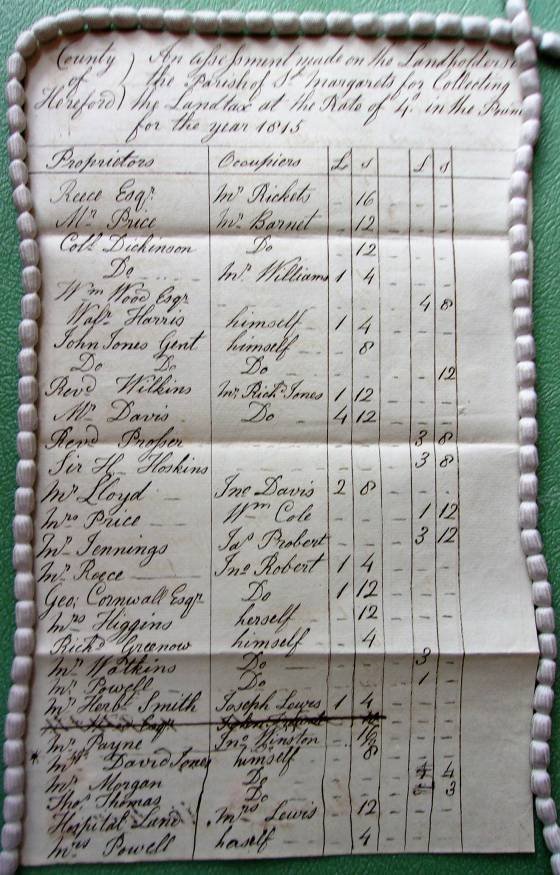 County } An assessment made on the Landholders in
of } the Parish of St Margarets for Collecting
Hereford } the Landtax at the Rate of 4s in the
for the year 1815
Proprietors Occupiers £ s £ s
Reece Esqr Mr Rickets - 16 - -
Mr Price Mr Barnet - 12 - -
Coll Dickinson Do 12 - -
Do Mr Williams 1 4 - -
Wm Wood Esqr - - 4 8
Walr Harris himself 1 4 - -
John Jones Gent himself - 8 - -
Do Do Do - - 12
Revd Wilkins Mr Richd Jones 1 12 - -
Mr Davis Do 4 12 - -
Revd Prosser - - 3 8
Sir H Hoskins - - 3 8
Mr Lloyd Jno Davis 2 8 - -
Mrs Price Wm Cole - - 1 12
Mr Jennings Jas Probert - - 3 12
Mr Reece Jno Robert 1 4 - -
Geo; Cornwall Esqr Do 1 12 - -
Mrs Higgins herself - 12 - -
Richd Greenow himself - 4 - -
Mr Watkins Do - - 3 -
Mr Powell Do - - 1 -
Mr Herbt Smith Joseph Lewis 1 4 - -
Mr Payne Jno Winston - 16 - -
David Jones himself 8 - -
Mr Morgan Do - - 4
Thos Thomas Do - - 3
Hospital Land Mrs Lewis 12 - -
Mrs Powell herself - 4 - -